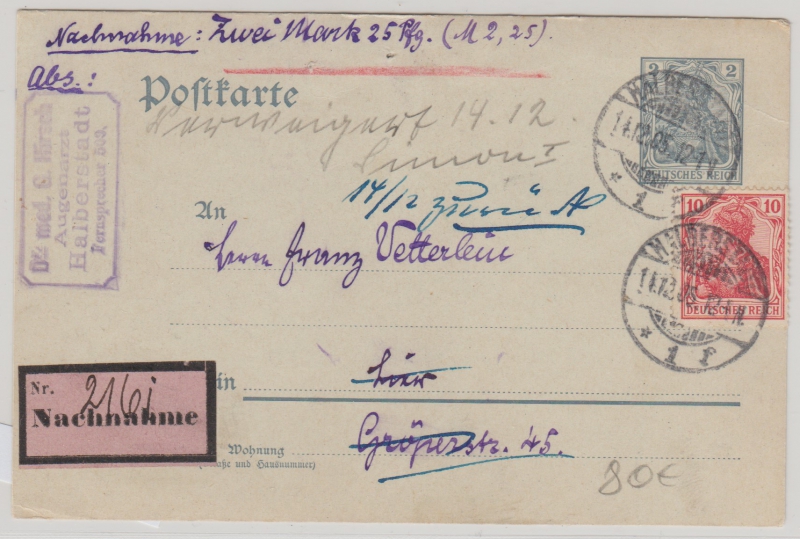 Nachnahme: Zwei Mark 25 Pfg. (M 2,25).
Abs.:
Dr. med. C. Hirsch
Augenarzt
Halberstadt
Fernsprecher
Postkarte
2 2
DEUTSCHES REICH
HALBERSTADT
14.12.05.12-1N.
* 1 f
Verweigert 14.12.
Simon I
14/12 zurück
An
Herrn Franz Vetterlein
10 10
DEUTSCHES REICH
HALBERSTADT
14.12.05.12-1N.
* 1 f
in hier
Nr. 216i
Nachnahme
Wohnung
(Straße und Hausnummer)
Gröperstr. 45.
80€